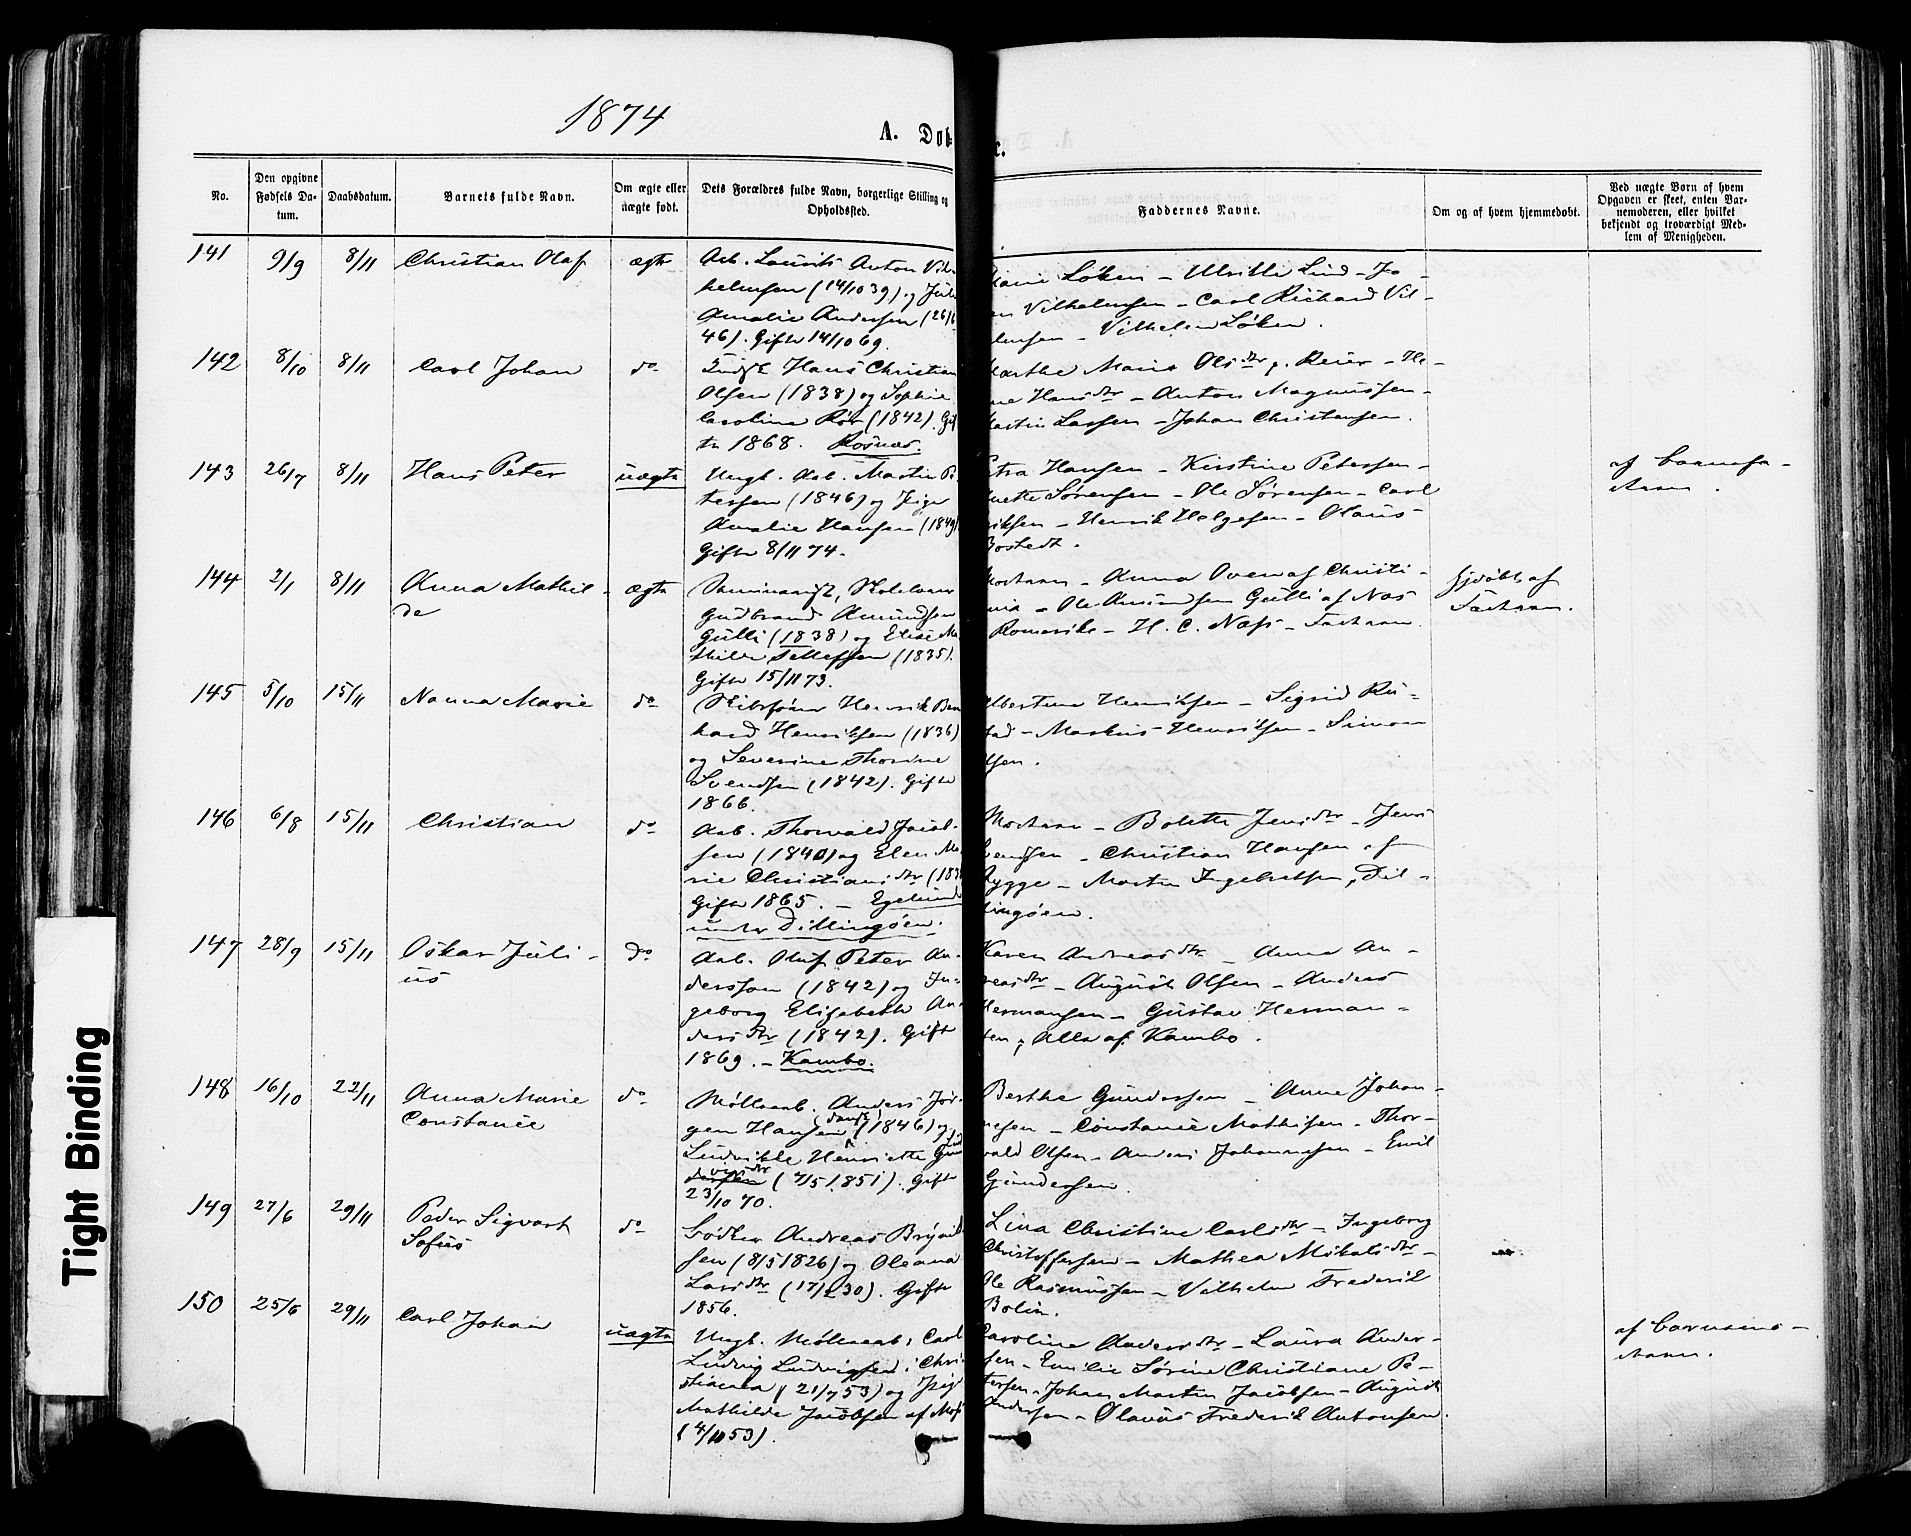 1874
A. Døb
e.
No.
Den opgivne Fødsels Da-
tum.
Daabsdatum.
Barnets fulde Navn.
Om ægte eller
uægte født.
Dets Forældres fulde Navn, borgerlige Stilling og
Opholdssted.
Faddernes Navne.
Om og af hvem hjemmedøbt.
Ved uægte Børn af hvem
Opgaven er skeet, enten Bar-
nemoderen, eller hvilket
bekjendt og troværdigt Med-
lem af Menigheden.
141 9/9 8/11 Christian Olaf ægte
Arb. Laurits Anton Vil-
helmsen (14/10 39) og Juli
Amalie Andersen (26/6
46). Gifte 14/10 69.
Løken - Ulrikke Lind - Jo-
en Vilhelmsen - Carl Richard Vil-
elmsen - Vilhelm Løken.
142 8/10 8/11 Carl Johan do
Hans Christian
Olsen (1838) og Sophie
Caroline Rör (1842). Gif
te 1868. Rosnæs.
Marthe Marie Olsdtr p. Reier - He-
ne Hansdtr - Anton Magnussen -
Martin Larsen - Johan Christensen.
143 26/7 8/11 Hans Peter uægte
Ungk. Arb. Martin Pe
tersen (1846) og Pige
Amalie Hansen (1849)
Gifte 8/11 74.
etra Hansen - Kirstine Petersen -
nette Sørensen - Ole Sørensen - Carl
riksen - Henrik Helgesen - Olaus
Bostedt.
af Barnefa-
deren.
144 2/1 8/11 Anna Mathil-
de
ægte
Seminarist, Skolelærer
Gudbrand Amundsen
Gulli (1838) og Elise Ma
thilde Tellefsen (1835).
Gifte 15/11 73.
Moderen - Anna Oven af Christi-
nia - Ole Amundsen Gulli af Næs
Romerike - H. C. Næss - Faderen.
hjdøbt af
Faderen.
145 5/10 15/11 Nanna Marie do
Skibsfører Henrik Bern
hard Henriksen (1836)
og Severine Thorine
Svendsen (1842). Gifte
1866.
Albertine Henriksen - Sigrid Ru-
stad - Markus Henriksen - Simon
lsen.
146 6/8 15/11 Christian do
Arb. Thorvald Jacob-
sen (1840) og Elen Ma
rie Christiansdtr (183
Gifte 1865. - Egelund
under Dillingöen.
Moderen - Bolette Jensdtr - Jens
Svendsen - Christian Hansen af
Rygge - Morten Ingebretsen, Dil-
lingöen.
147 28/9 15/11 Oskar Juli-
us
do
Arb. Oluf Peter An-
dersson (1842) og In-
geborg Elizabeth An-
dersdtr (1842). Gift
1869. - Kambo.
Karen Andreasdtr - Anna An-
dreasdtr - August Olsen - Anders
Hermansen - Gustav Herman-
sen, Alle af Kambo.
148 16/10 22/11 Anna Marie
Constance
do
Møllearb. Anders Jör-
gen Hansen (dansk) (1846) og
Ludvikke Henriette
(2/5 1851). Gifte
23/10 70.
Berthe Gundersen - Anne Johan-
nesen - Constance Mathisen - Thor-
vald Olsen - Anders Johannesen - Emil
Gundersen.
149 27/6 29/11 Peder Sigvart
Sofus
do
Bödker Andreas Brynild
sen (8/5 1826) og Oleana
Larsdtr (17/2 30). Gifte
1856.
Lina Christine Carlsdtr - Ingeborg
Christoffersen - Mathea Mikalsdtr -
Ole Rasmussen - Vilhelm Frederik
Bolin.
150 25/6 29/11 Carl Johan uægte
Ungk. Møllearb. Carl
Ludvig Ludvigsen i Chri
stiania (21/7 53) og Pige
Mathilde Jacobsen af Moss
(4/11 53).
Caroline Andersdtr - Laura Ander-
sen - Emilie Sørine Christiane Pe-
tersen - Johan Martin Jacobsen - August
Andersen - Olavus Frederik Antonsen.
af Barnemo-
deren.
Tight Binding